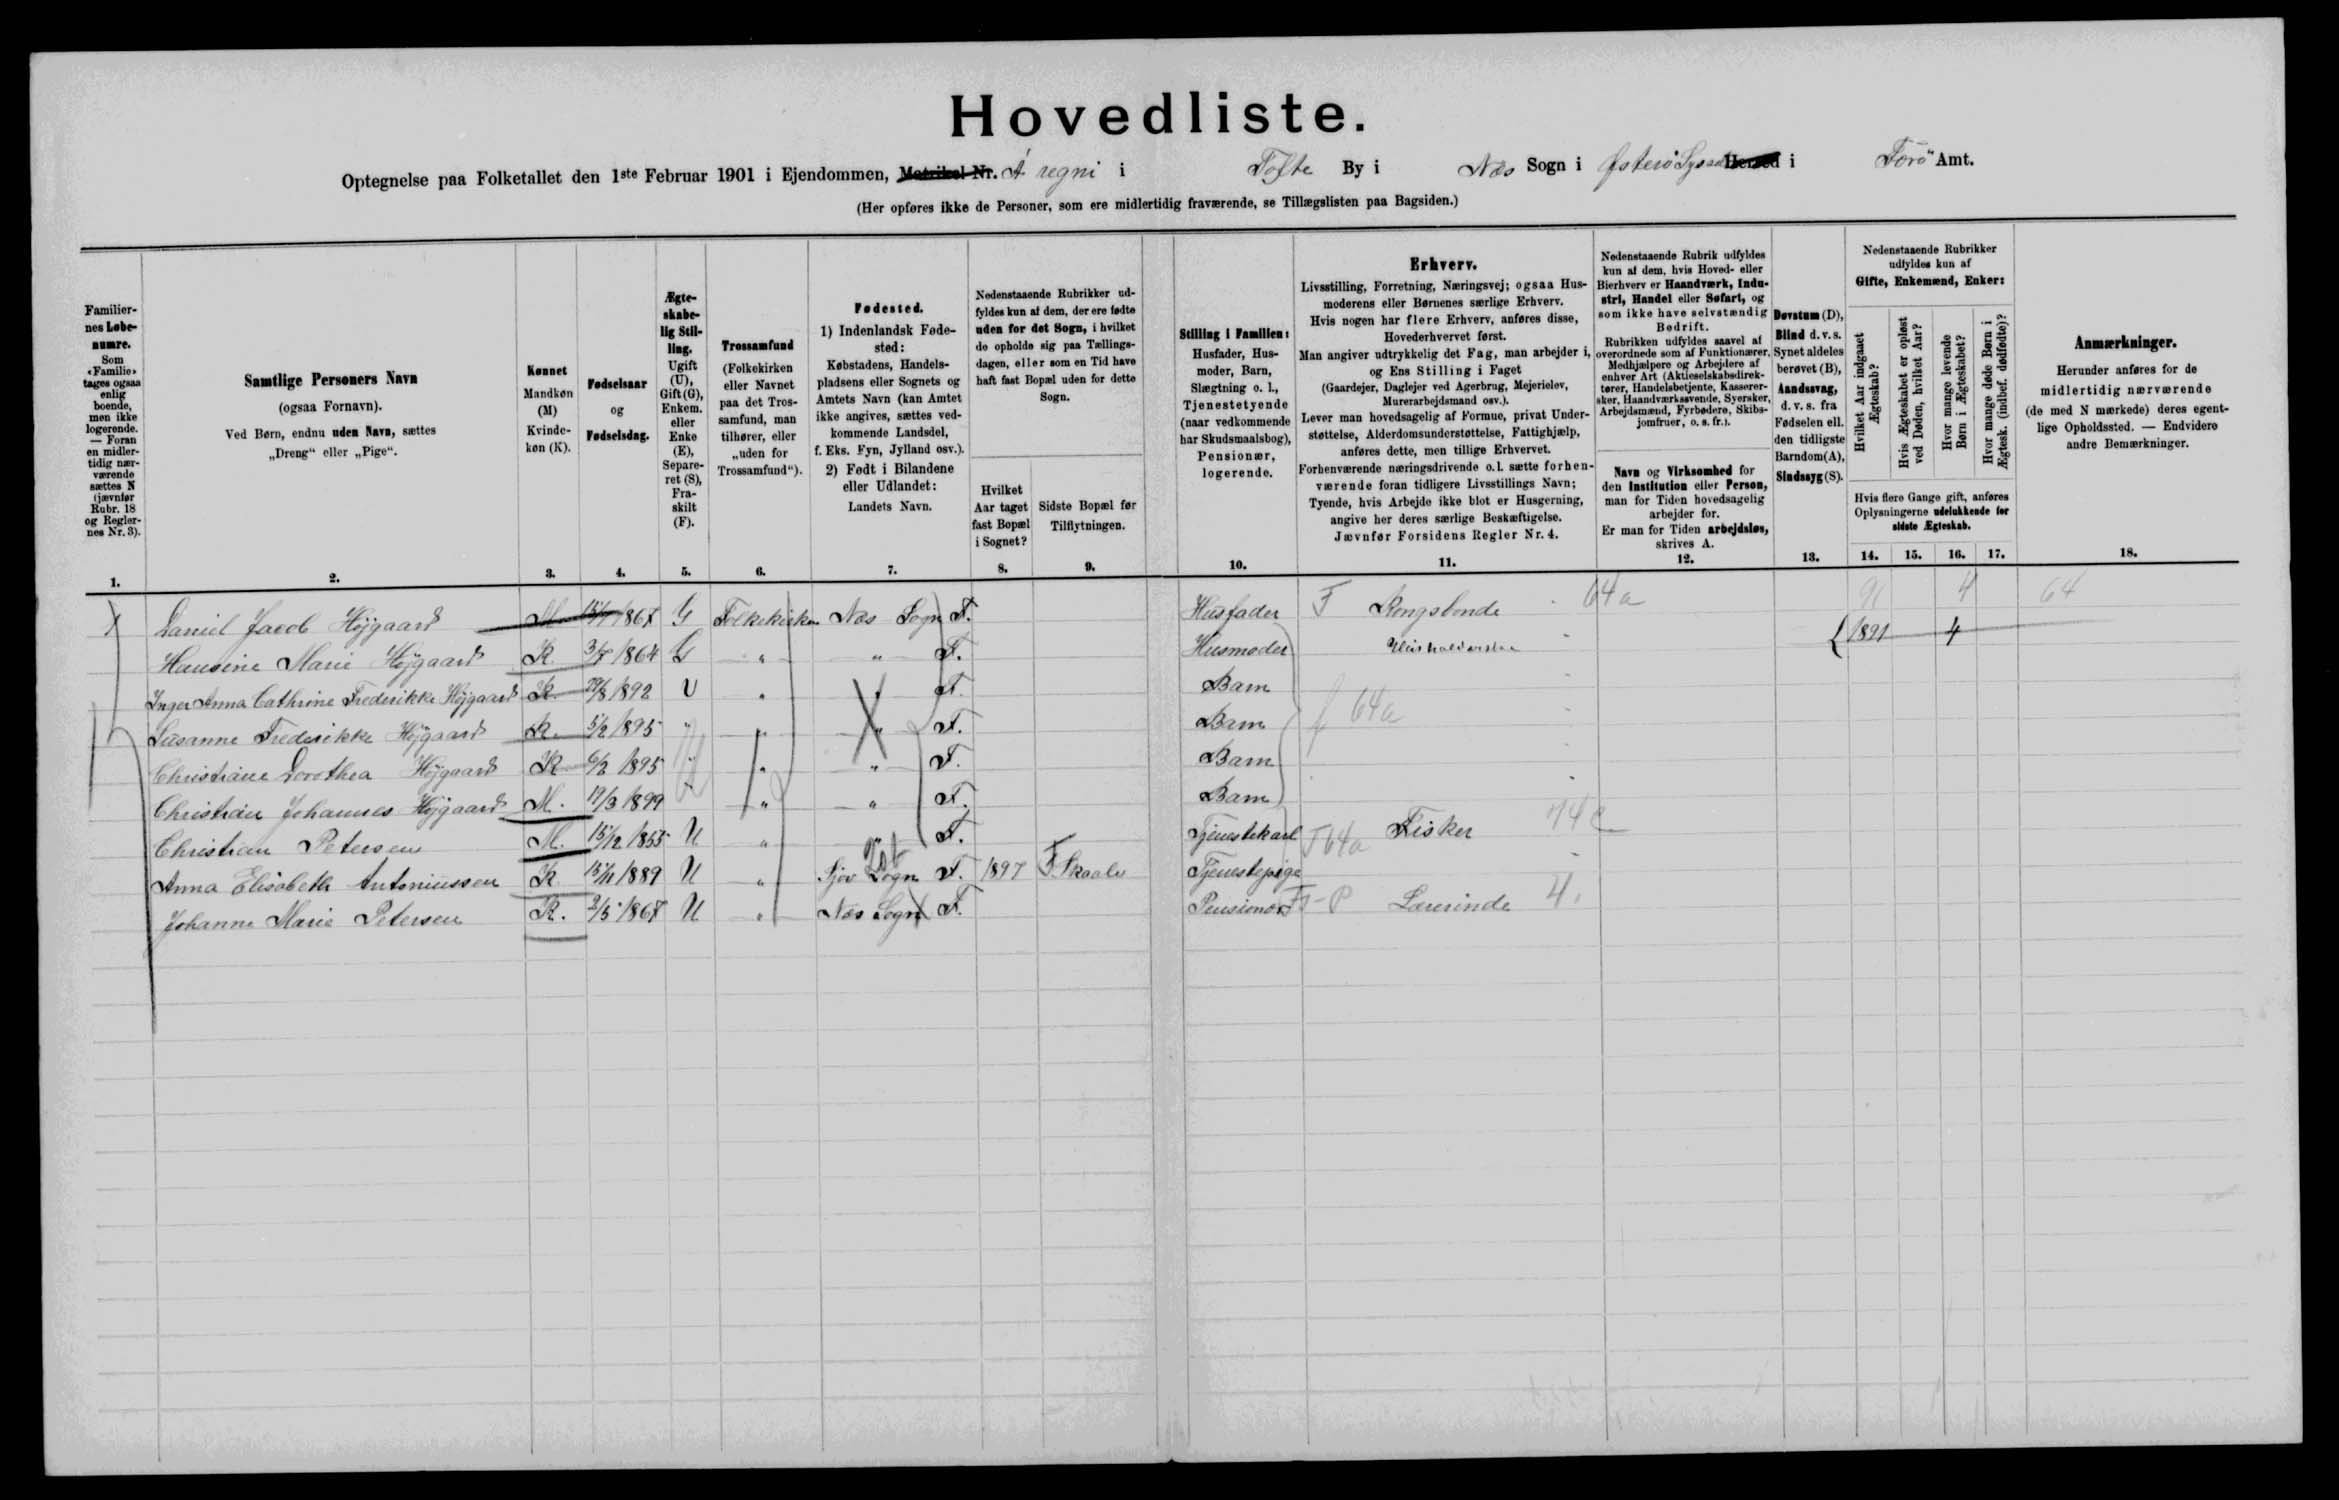 Hovedliste.
Optegnelse paa Folketallet den 1ste Februar 1901 i Ejendommen, Matrikel Nr. Á regni i Tofte By i Næs Sogn i Østerø Syssel Herred i Færö Amt.
(Her opføres ikke de Personer, som ere midlertidig fraværende, se Tillægslisten paa Bagsiden.)
Familier-
nes Løbe-
numre.
Som
«Familie»
tages ogsaa
enlig
boende,
men ikke
logerende.
— Foran
en midler-
tidig nær-
værende
sættes N
(jævnfør
Rubr. 18
og Regler-
nes Nr. 3).
1.
Samtlige Personers Navn
(ogsaa Fornavn).
Ved Børn, endnu uden Navn, sættes
„Dreng“ eller „Pige“.
2.
Kønnet
Mandkøn
(M)
Kvinde-
køn (K).
3.
Fødselsaar
og
Fødselsdag.
4.
Ægte-
skabe-
lig Stil-
ling.
Ugift
(U),
Gift (G),
Enkem.
eller
Enke
(E),
Separe-
ret (S),
Fra-
skilt
(F).
5.
Trossamfund
(Folkekirken
eller Navnet
paa det Tros-
samfund, man
tilhører, eller
„uden for
Trossamfund“).
6.
Fødested.
1) Indenlandsk Føde-
sted:
Købstadens, Handels-
pladsens eller Sognets og
Amtets Navn (kan Amtet
ikke angives, sættes ved-
kommende Landsdel,
f. Eks. Fyn, Jylland osv.).
2) Født i Bilandene
eller Udlandet:
Landets Navn.
7.
Nedenstaaende Rubrikker ud-
fyldes kun af dem, der ere fødte
uden for det Sogn, i hvilket
de opholde sig paa Tællings-
dagen, eller som en Tid have
haft fast Bopæl uden for dette
Sogn.
Hvilket
Aar taget
fast Bopæl
i Sognet?
8.
Sidste Bopæl før
Tilflytningen.
9.
Stilling i Familien:
Husfader, Hus-
moder, Barn,
Slægtning o. l.,
Tjenestetyende
(naar vedkommende
har Skudsmaalsbog),
Pensionær,
logerende.
10.
Erhverv.
Livsstilling, Forretning, Næringsvej; ogsaa Hus-
moderens eller Børnenes særlige Erhverv.
Hvis nogen har flere Erhverv, anføres disse,
Hovederhvervet først.
Man angiver udtrykkelig det Fag, man arbejder i,
og Ens Stilling i Faget
(Gaardejer, Daglejer ved Agerbrug, Mejerielev,
Murerarbejdsmand osv.).
Lever man hovedsagelig af Formue, privat Under-
støttelse, Alderdomsunderstøttelse, Fattighjælp,
anføres dette, men tillige Erhvervet.
Forhenværende næringsdrivende o.l. sætte forhen-
værende foran tidligere Livsstillings Navn;
Tyende, hvis Arbejde ikke blot er Husgerning,
angive her deres særlige Beskæftigelse.
Jævnfør Forsidens Regler Nr. 4.
11.
Nedenstaaende Rubrik udfyldes
kun af dem, hvis Hoved- eller
Bierhverv er Haandværk, Indu-
stri, Handel eller Søfart, og
som ikke have selvstændig
Bedrift.
Rubrikken udfyldes saavel af
overordnede som af Funktionærer,
Medhjælpere og Arbejdere af
enhver Art (Aktieselskabsdirek-
tører, Handelsbetjente, Kasserer-
sker, Haandværkssvende, Syersker,
Arbejdsmænd, Fyrbødere, Skibs-
jomfruer, o. s. fr.).
Navn og Virksomhed for
den Institution eller Person,
man for Tiden hovedsagelig
arbejder for.
Er man for Tiden arbejdsløs,
skrives A.
12.
Døvstum (D),
Blind d. v. s.
Synet aldeles
berøvet (B),
Aandssvag,
d. v. s. fra
Fødselen ell.
den tidligste
Barndom(A),
Sindssyg (S).
13.
Nedenstaaende Rubrikker
udfyldes kun af
Gifte, Enkemænd, Enker:
Hvilket Aar indgaaet
Ægteskab?
Hvis Ægteskabet er opløst
ved Døden, hvilket Aar?
Hvor mange levende
Børn i Ægteskabet?
Hvor mange døde Børn i
Ægtesk. (indbef. dødfødte)?
Hvis flere Gange gift, anføres
Oplysningerne udelukkende for
sidste Ægteskab.
14. 15. 16. 17.
Anmærkninger.
Herunder anføres for de
midlertidig nærværende
(de med N mærkede) deres egent-
lige Opholdssted. — Endvidere
andre Bemærkninger.
18.
Daniel Jacob Højgaard M 1867 G Folkekirken Næs Sogn F. Husfader F Kongsbonde 64a 91 4 64
Hansine Marie Højgaard K 1864 G " " F. Husmoder 1891 4
Inger Anna Cathrine Frederikke Højgaard K 29/8 1892 U " " F. Barn
Susanne Frederikke Højgaard K. 5/2 1895 " " " F. Barn f 64a
Christiane Dorothea Højgaard K 6/2 1895 " " " F. Barn
Christian Johannes Højgaard M. 1899 " " " F. Barn
Christian Petersen M. 15/12 1855 U " " F. Tjenestekarl F 64a Fisker 74c
Anna Elisabeth Antoniussen K 1889 U " Sjov Sogn F. 1897 F. Skaale Tjenestepige
Johanne Marie Petersen K. 1867 U " Næs Sogn F. Pensionær F-P Lærerinde 4.